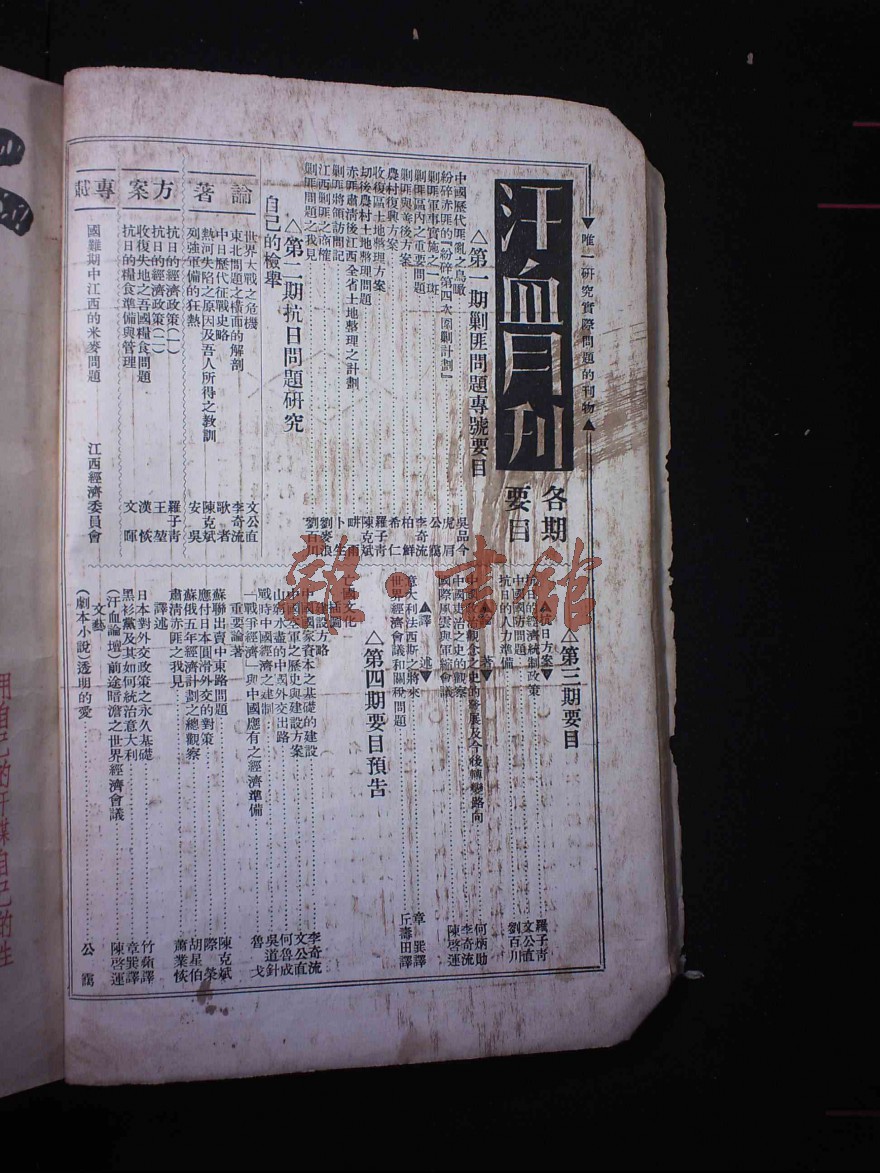 ▼唯一研究實際問題的刊物▲
汗血月刊
各期
要目
△第一期剿匪問題專號要目
中國歷代匪亂之鳥瞰 吳品今
粉碎赤匪的『粉碎第四次圍剿計劃』 虎眉
剿匪軍事實施之一斑 公靄
剿匪區內之重要問題 李奇流
剿匪與善後方案 柏鮮
農村復興方案 希仁
收復匪區土地整理方案 羅子青
劫後農村土地整理問題 陳克斌
赤匪肅清後江西全省土地整理之計劃 畊雨
剿匪將領訪問記 卜生
江西剿匪之商榷 劉麥浪
剿匪問題之我見 劉百川
自己的檢舉
△第二期抗日問題研究
論著
世界大戰之危機 文公直
東北問題之橫面的解剖 李奇流
中日歷代征戰史略 歌者
熱河失陷之原因及吾人所得之教訓 陳克斌
列強軍備的狂熱 安吳
方案
抗日的經濟政策(一) 羅子青
抗日的經濟政策(二) 王堃
收復失地之吾國糧食問題 漢恢
抗日的糧食準備與管理 文暉
專載
國難期中江西的米麥問題 江西經濟委員會
△第三期要目
▲抗日方案▼
抗日的經濟統制政策 羅子青
中國國防問題 文公直
抗日的人力準備 劉百川
▲論著▼
中國政治觀念之史的發展及今後轉變路向 何炳勛
中國吏治之史的觀察 李奇流
國際風雲與軍縮會議 陳啓運
▲譯述▼
意大利法西斯之將來 章巽譯
世界經濟會議和關稅問題 丘壽田譯
△第四期要目預告
亡國文化
插圖
建設方略
中國國家資本之基礎的建設 李奇流
中國空軍之歷史與建設方案 文公直
山窮水盡的中國外交出路 何魯成
戰時中國經濟之建制 吳道針
『戰爭經濟』與中國應有之經濟準備 魯戈
重要論著
蘇聯出賣中東路問題 陳克斌
應付日本圓滑外交的對策 際榮
蘇俄五年經濟計劃之總觀察 胡星伯
肅清赤匪之我見 蕭業恢
譯述
日本對外交政策之永久基礎 竹蘋譯
黑衫黨及其如何統治意大利 章巽譯
(汗血論壇)前途暗澹之世界經濟會議 陳啓運
文藝
(劇本小說)透明的愛 公靄
雜·書館